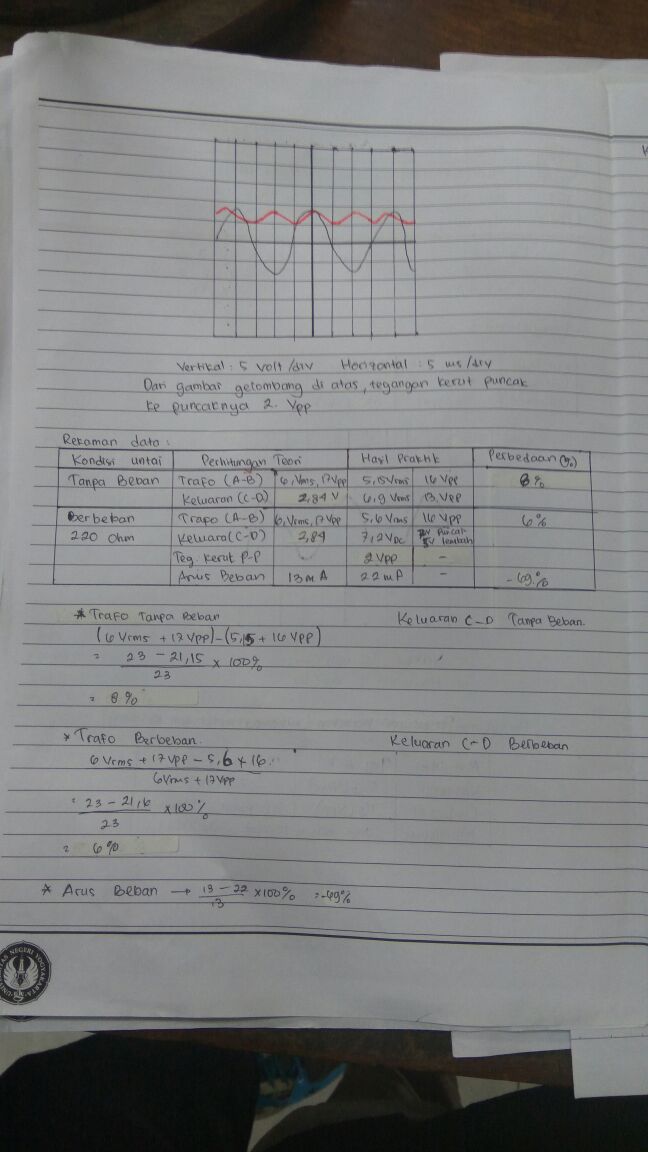 Vertikal : 5 volt/div Horizontal : 5 ms/div
Dari gambar gelombang di atas, tegangan kerut puncak
ke puncaknya 2. Vpp
Rekaman data :
Kondisi untai Perhitungan Teori Hasil Praktik Perbedaan (%)
Tanpa Beban Trafo (A-B) 6 Vrms, 17Vpp 5,15Vrms 16 Vpp 8%
Keluaran (C-D) 2,84 V 6,9 Vrms 13,Vpp
Berbeban Trafo (A-B) 6 Vrms, 17Vpp 5,6 Vrms 16 Vpp 6%
220 Ohm Keluara (C-D) 2,84 7,2 VDC Puncak
lembah
Teg. kerut P-P - 2 Vpp -
Arus Beban 13 mA 22 mA - -69%
* Trafo Tanpa Beban Keluaran C-D Tanpa Beban.
(6 Vrms + 17 Vpp) - (5,15 + 16 Vpp)
= 23 - 21,15 x 100%
23
= 8 %
* Trafo Berbeban. Keluaran C-D Berbeban
6 Vrms + 17 Vpp - 5,6 + 16.
6 Vrms + 17 Vpp
= 23 - 21,6 x 100%
23
= 6%
* Arus Beban → 13 - 22 x 100% = -69%
13